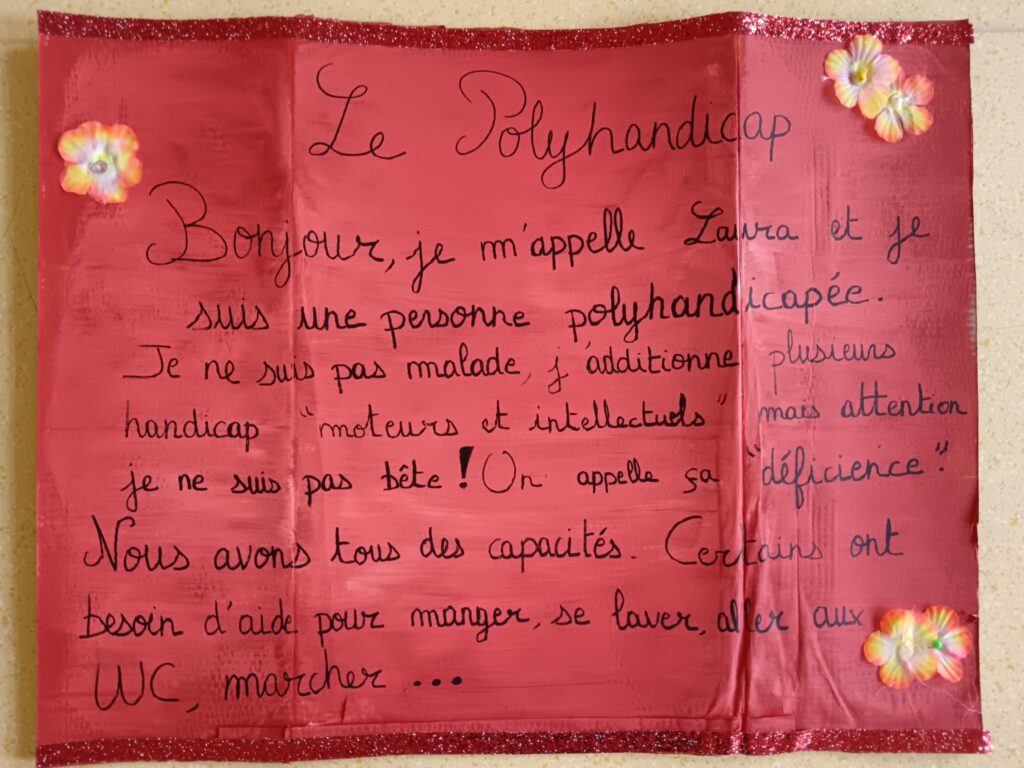 Le Polyhandicap
Bonjour, je m'appelle Laura et je
suis une personne polyhandicapée.
Je ne suis pas malade, j'additionne plusieurs
handicap "moteurs et intellectuels" mais attention
je ne suis pas bête ! On appelle ça "déficience".
Nous avons tous des capacités. Certains ont
besoin d'aide pour manger, se laver, aller aux
WC, marcher ...